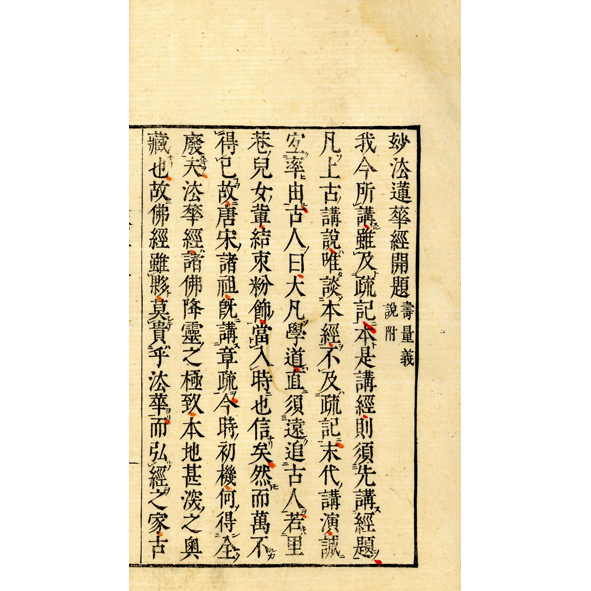 妙法蓮華經開題 壽量義說附
我今所講雖及疏記本是講經則須先講經題
凡上古講說唯談本經不及疏記末代講演誠
宜率由古人曰大凡學道直須遠追古人若里
巷兒女輩結束粉飾當入時也信矣然而萬不
得已故唐宋諸祖旣講章疏今時初機何得全
廢夫法華經諸佛降靈之極致本地甚深之奧
藏也故佛經雖夥莫貴乎法華而弘經之家古